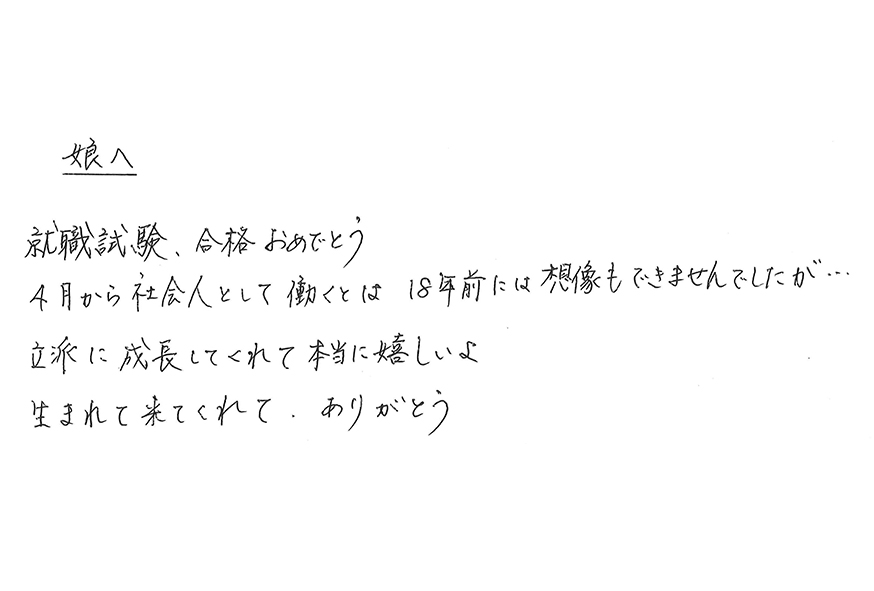 娘へ
就職試験、合格おめでとう
4月から社会人として働くとは 18年前には想像もできませんでしたが…
立派に成長してくれて本当に嬉しいよ
生まれて来てくれて、ありがとう